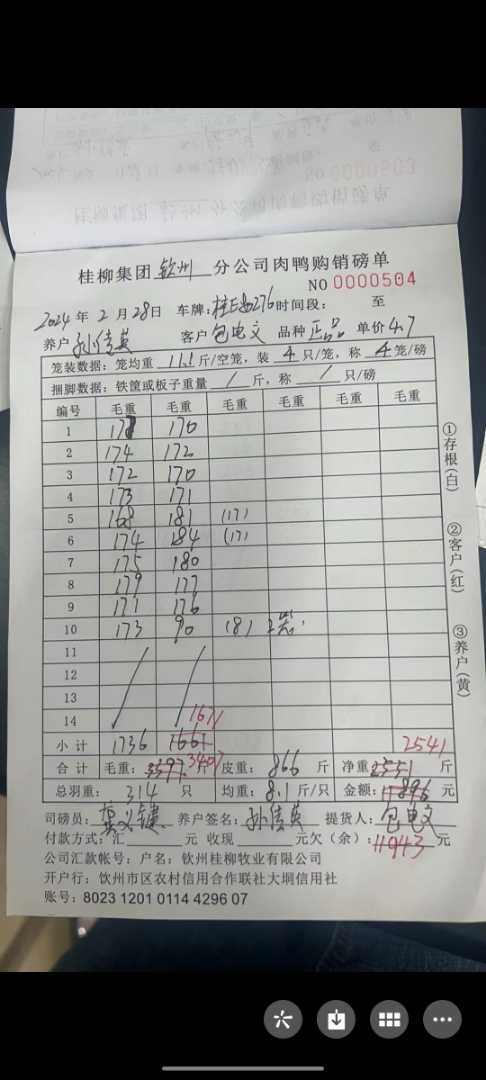 桂柳集团 钦州 分公司肉鸭购销磅单
NO 0000504
2024 年 2 月 28 日 车牌: 276 时间段: 至
养户 孙传英 客户 包电文 品种 正品 单价 4.7
笼装数据: 笼均重 11.1 斤/空笼, 装 4 只/笼, 称 4 笼/磅
捆脚数据: 铁筐或板子重量 / 斤, 称 / 只/磅
编号 毛重 毛重 毛重 毛重 毛重 毛重
1 178 170
2 174 172
3 172 170
4 173 171
5 168 181 (17)
6 174 184 (17)
7 175 180
8 179 177
9 171 176
10 173 90 (8)
11
12
13
14
1671
小计 1736 1661 2541
合计 毛重: 3397 3407 斤 皮重: 866 斤 净重 2531 斤
总羽重: 314 只 均重: 8.1 斤/只 金额: 11896 元
司磅员: 养户签名: 孙传英 提货人: 包电文
付款方式: 汇 元 收现 元欠(余): 11943 元
公司汇款帐号: 户名: 钦州桂柳牧业有限公司
开户行: 钦州市区农村信用合作联社大垌信用社
账号: 8023 1201 0114 4296 07
①存根(白)
②客户(红)
③养户(黄)